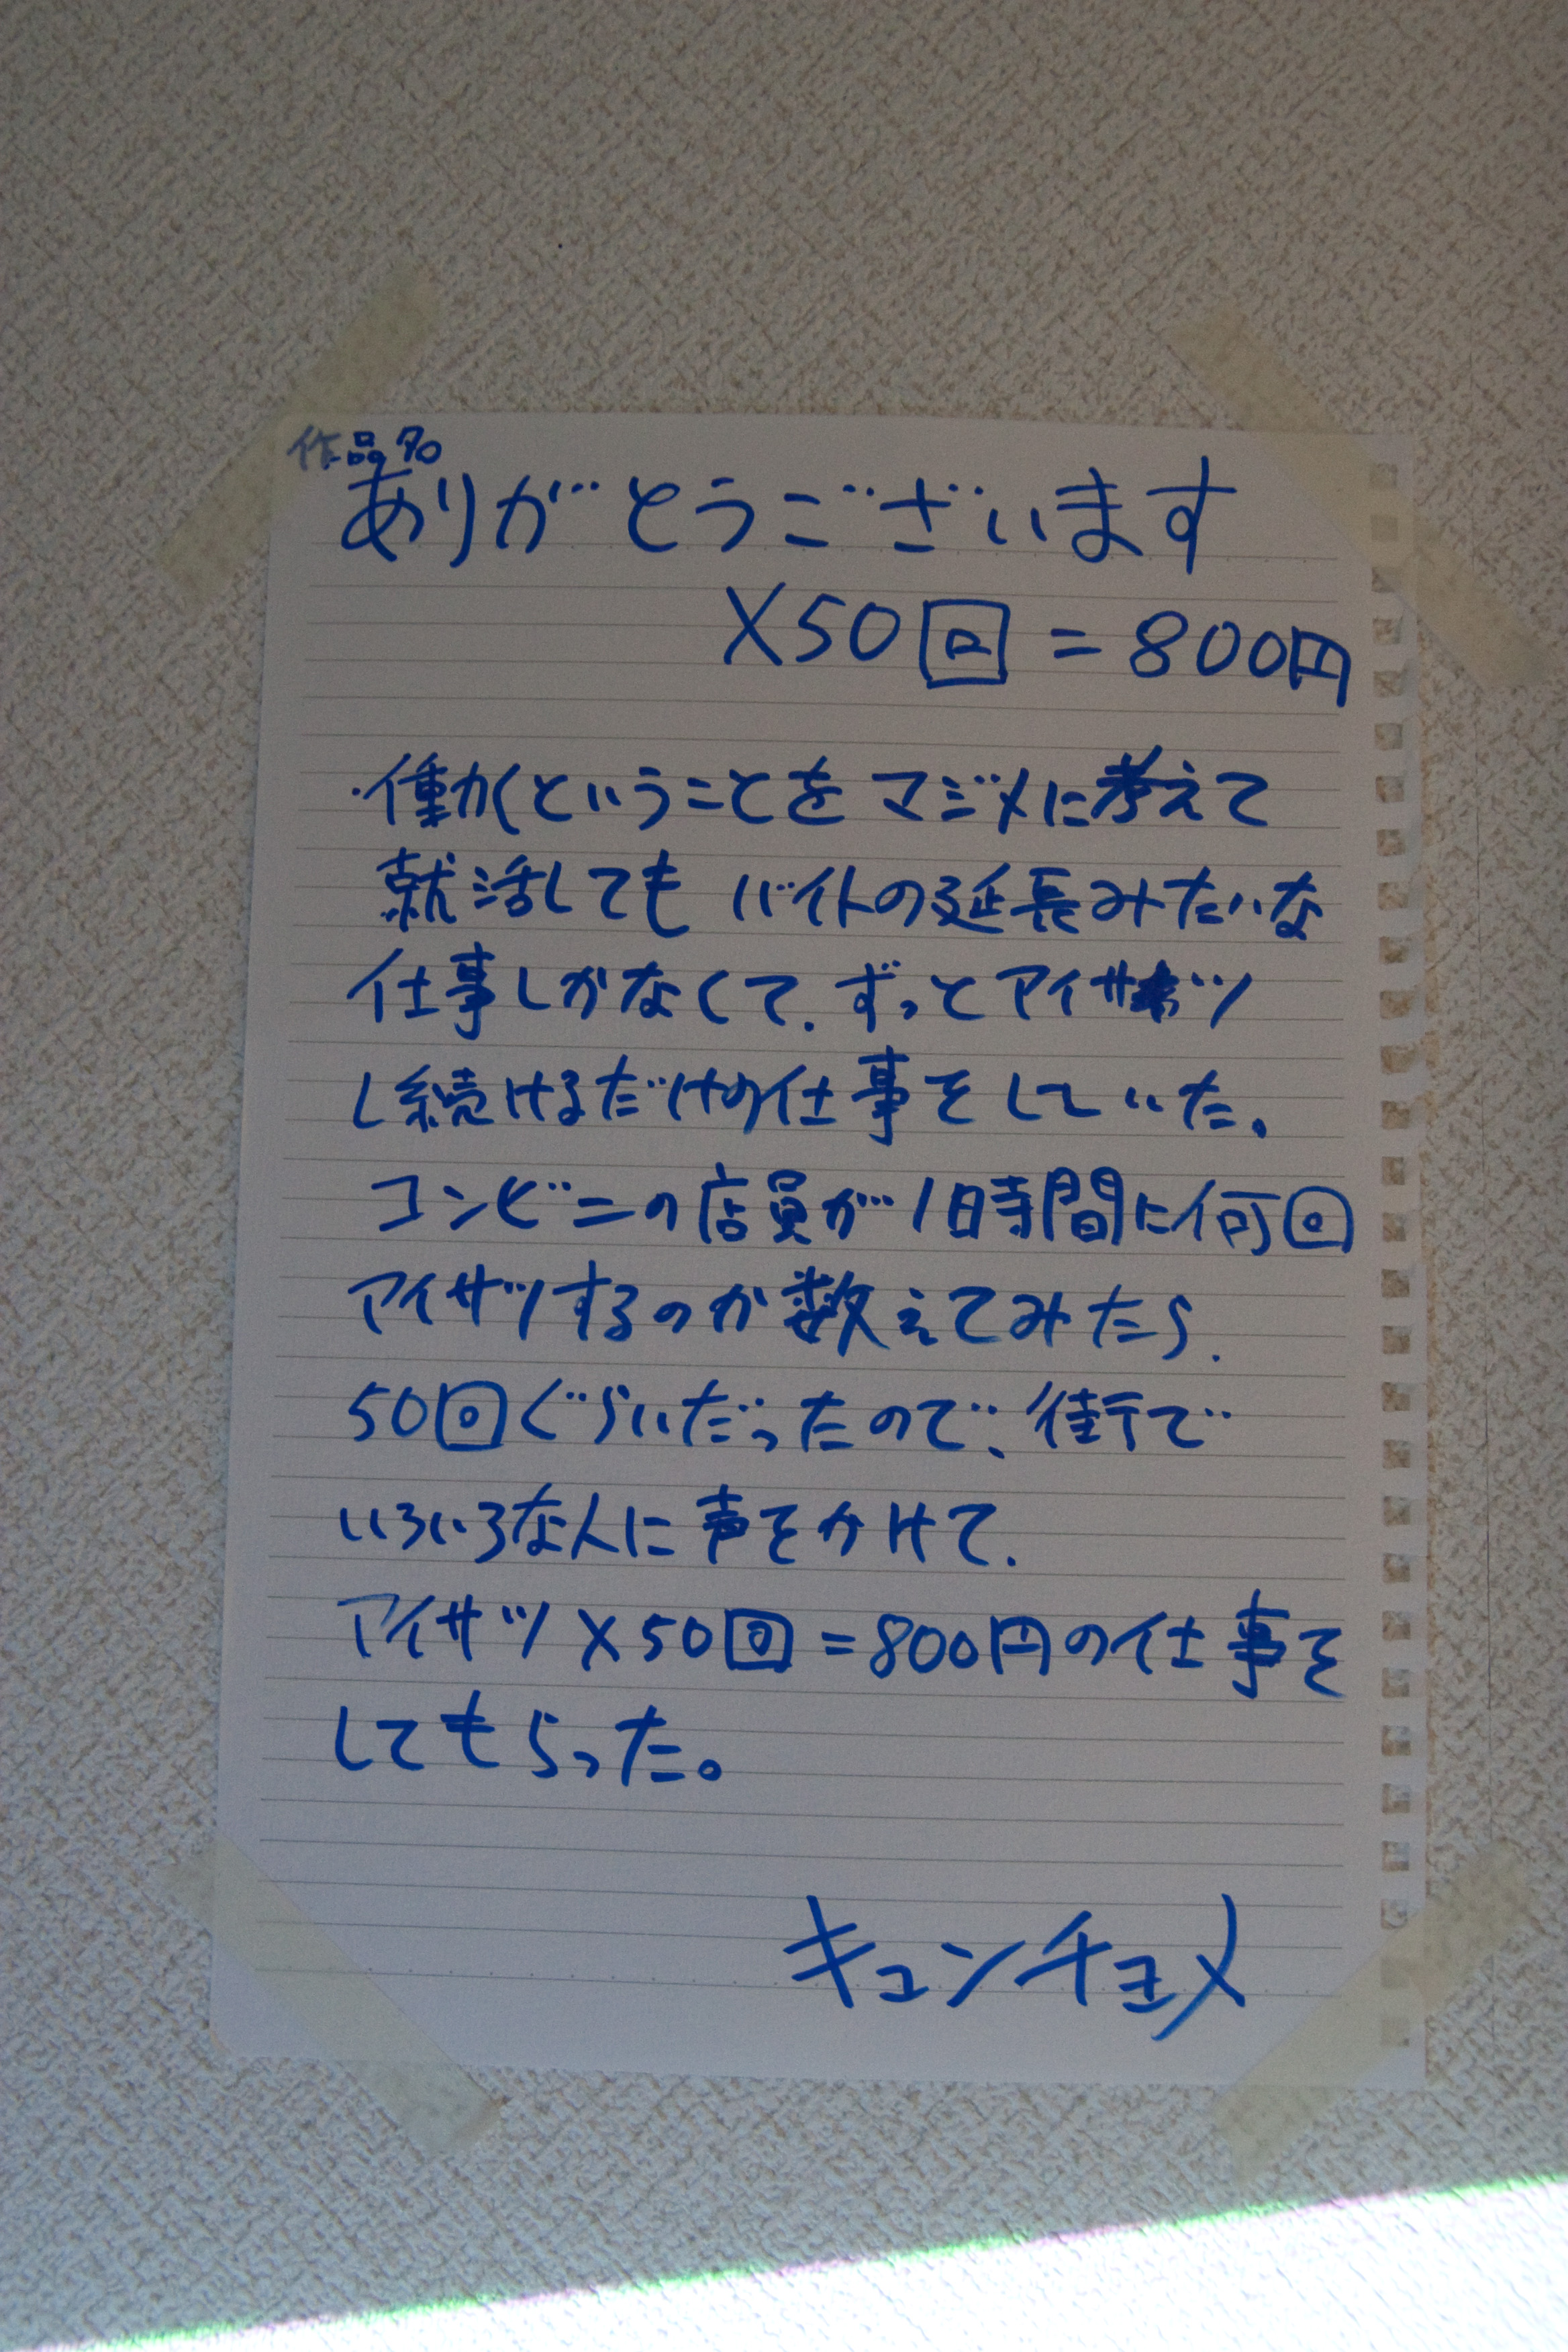 作品名
ありがとうございます
×50回=800円
・働くということをマジメに考えて
就活してもバイトの延長みたいな
仕事しかなくて、ずっとアイサツ
し続けるだけの仕事をしていた。
コンビニの店員が1時間に何回
アイサツするのか数えてみたら、
50回ぐらいだったので、街で
いろいろな人に声をかけて、
アイサツ×50回=800円の仕事を
してもらった。
キュンチョメ